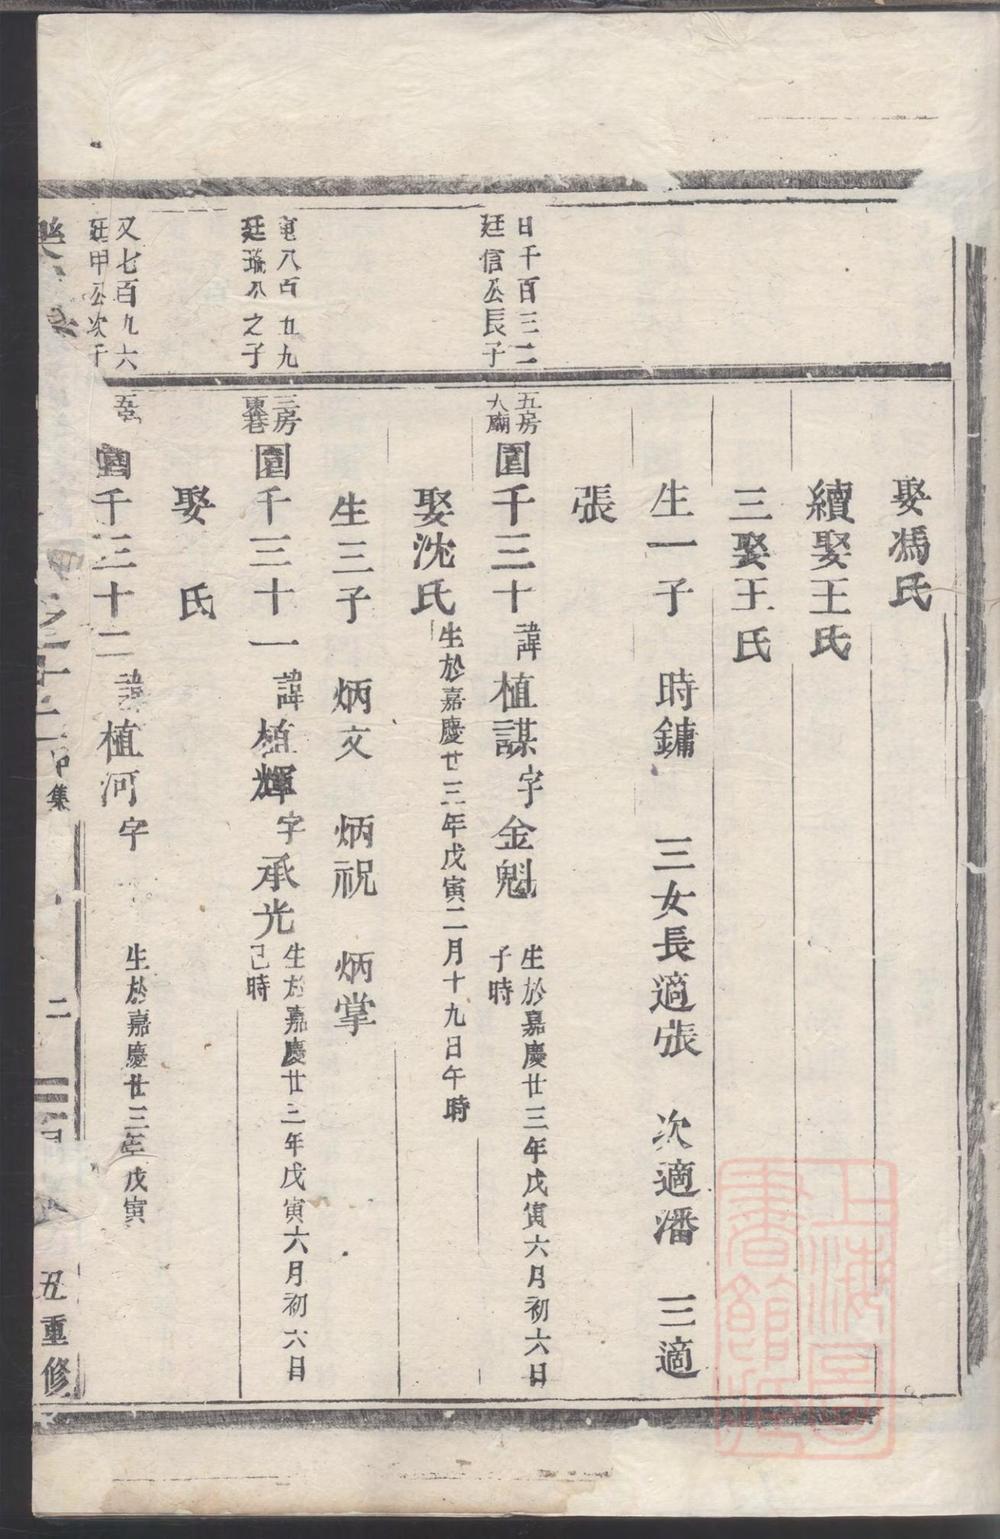 娶馮氏
續娶王氏
三娶王氏
生一子 時鏞 三女長適張 次適潘 三適
張
日千百三二
廷信公長子
五房
大廟
圍千三十諱植謀字金魁
生於嘉慶廿三年戊寅六月初六日
子時
娶沈氏生於嘉慶廿三年戊寅二月十九日午時
生三子 炳文 炳祝 炳掌
八百九九
廷公之子
三房
東巷
圍千三十一諱植輝字承光
生於嘉慶廿三年戊寅六月初六日
巳時
娶 氏
又七百九六
廷甲公次子
千三十二諱植河字
生於嘉慶廿三年戊寅
之十二
集
二
丑重修
上海圖書館藏